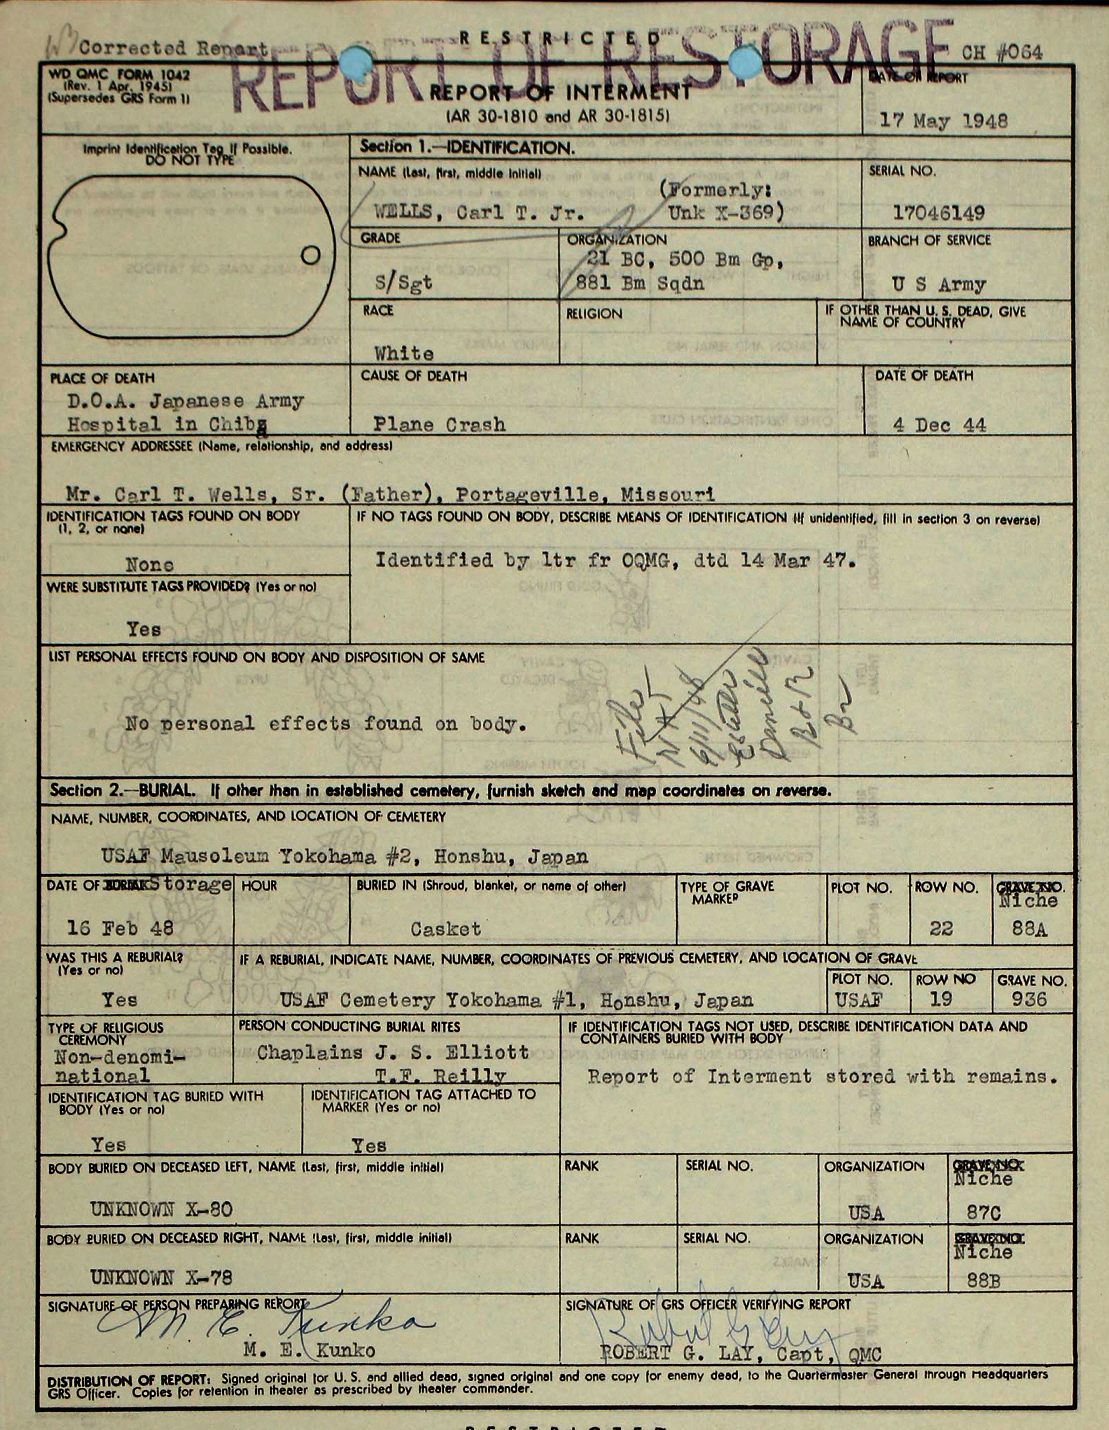 Corrected Report
RESTRICTED
REPORT OF RESTORAGE
CH #064
WD QMC FORM 1042
(Rev. 1 Apr. 1945)
(Supersedes GRS Form 1)
REPORT OF INTERMENT
(AR 30-1810 and AR 30-1815)
DATE OF REPORT
17 May 1948
Imprint Identification Tag If Possible.
DO NOT TYPE
Section 1.—IDENTIFICATION.
NAME (Last, first, middle initial)
(Formerly:
WELLS, Carl T. Jr. Unk X-369)
SERIAL NO.
17046149
GRADE
S/Sgt
ORGANIZATION
21 BC, 500 Bm Gp,
881 Bm Sqdn
BRANCH OF SERVICE
U S Army
RACE
White
RELIGION
IF OTHER THAN U. S. DEAD, GIVE
NAME OF COUNTRY
PLACE OF DEATH
D.O.A. Japanese Army
Hospital in Chiba
CAUSE OF DEATH
Plane Crash
DATE OF DEATH
4 Dec 44
EMERGENCY ADDRESSEE (Name, relationship, and address)
Mr. Carl T. Wells, Sr. (Father), Portageville, Missouri
IDENTIFICATION TAGS FOUND ON BODY
(1, 2, or none)
None
IF NO TAGS FOUND ON BODY, DESCRIBE MEANS OF IDENTIFICATION (If unidentified, fill in section 3 on reverse)
Identified by ltr fr OQMG, dtd 14 Mar 47.
WERE SUBSTITUTE TAGS PROVIDED? (Yes or no)
Yes
LIST PERSONAL EFFECTS FOUND ON BODY AND DISPOSITION OF SAME
No personal effects found on body.
File
NAT
6/11/48
R & R
Br
Section 2.—BURIAL. If other than in established cemetery, furnish sketch and map coordinates on reverse.
NAME, NUMBER, COORDINATES, AND LOCATION OF CEMETERY
USAF Mausoleum Yokohama #2, Honshu, Japan
DATE OF BURIAL Storage
16 Feb 48
HOUR
BURIED IN (Shroud, blanket, or name of other)
Casket
TYPE OF GRAVE
MARKER
PLOT NO.
ROW NO.
22
GRAVE NO.
Niche
88A
WAS THIS A REBURIAL?
(Yes or no)
Yes
IF A REBURIAL, INDICATE NAME, NUMBER, COORDINATES OF PREVIOUS CEMETERY, AND LOCATION OF GRAVE
USAF Cemetery Yokohama #1, Honshu, Japan
PLOT NO.
USAF
ROW NO
19
GRAVE NO.
936
TYPE OF RELIGIOUS
CEREMONY
Non-denomi-
national
PERSON CONDUCTING BURIAL RITES
Chaplains J. S. Elliott
T.F. Reilly
IF IDENTIFICATION TAGS NOT USED, DESCRIBE IDENTIFICATION DATA AND
CONTAINERS BURIED WITH BODY
Report of Interment stored with remains.
IDENTIFICATION TAG BURIED WITH
BODY (Yes or no)
Yes
IDENTIFICATION TAG ATTACHED TO
MARKER (Yes or no)
Yes
BODY BURIED ON DECEASED LEFT, NAME (Last, first, middle initial)
UNKNOWN X-80
RANK
SERIAL NO.
ORGANIZATION
USA
GRAVE NO.
Niche
87C
BODY BURIED ON DECEASED RIGHT, NAME (Last, first, middle initial)
UNKNOWN X-78
RANK
SERIAL NO.
ORGANIZATION
USA
GRAVE NO.
Niche
88B
SIGNATURE OF PERSON PREPARING REPORT
M. E. Kunko
M. E. Kunko
SIGNATURE OF GRS OFFICER VERIFYING REPORT
Robert G. Lay
ROBERT G. LAY, Capt, QMC
DISTRIBUTION OF REPORT: Signed original for U. S. and allied dead, signed original and one copy for enemy dead, to the Quartermaster General through Headquarters
GRS Officer. Copies for retention in theater as prescribed by theater commander.
RESTRICTED